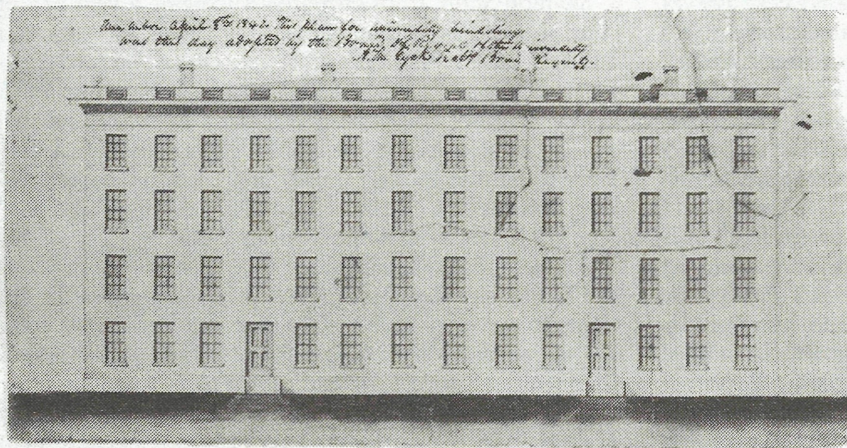 Ann Arbor April 8th 1840 This plan for university buildings
was this day adopted by the Board of Regents of the University
Board Regents.